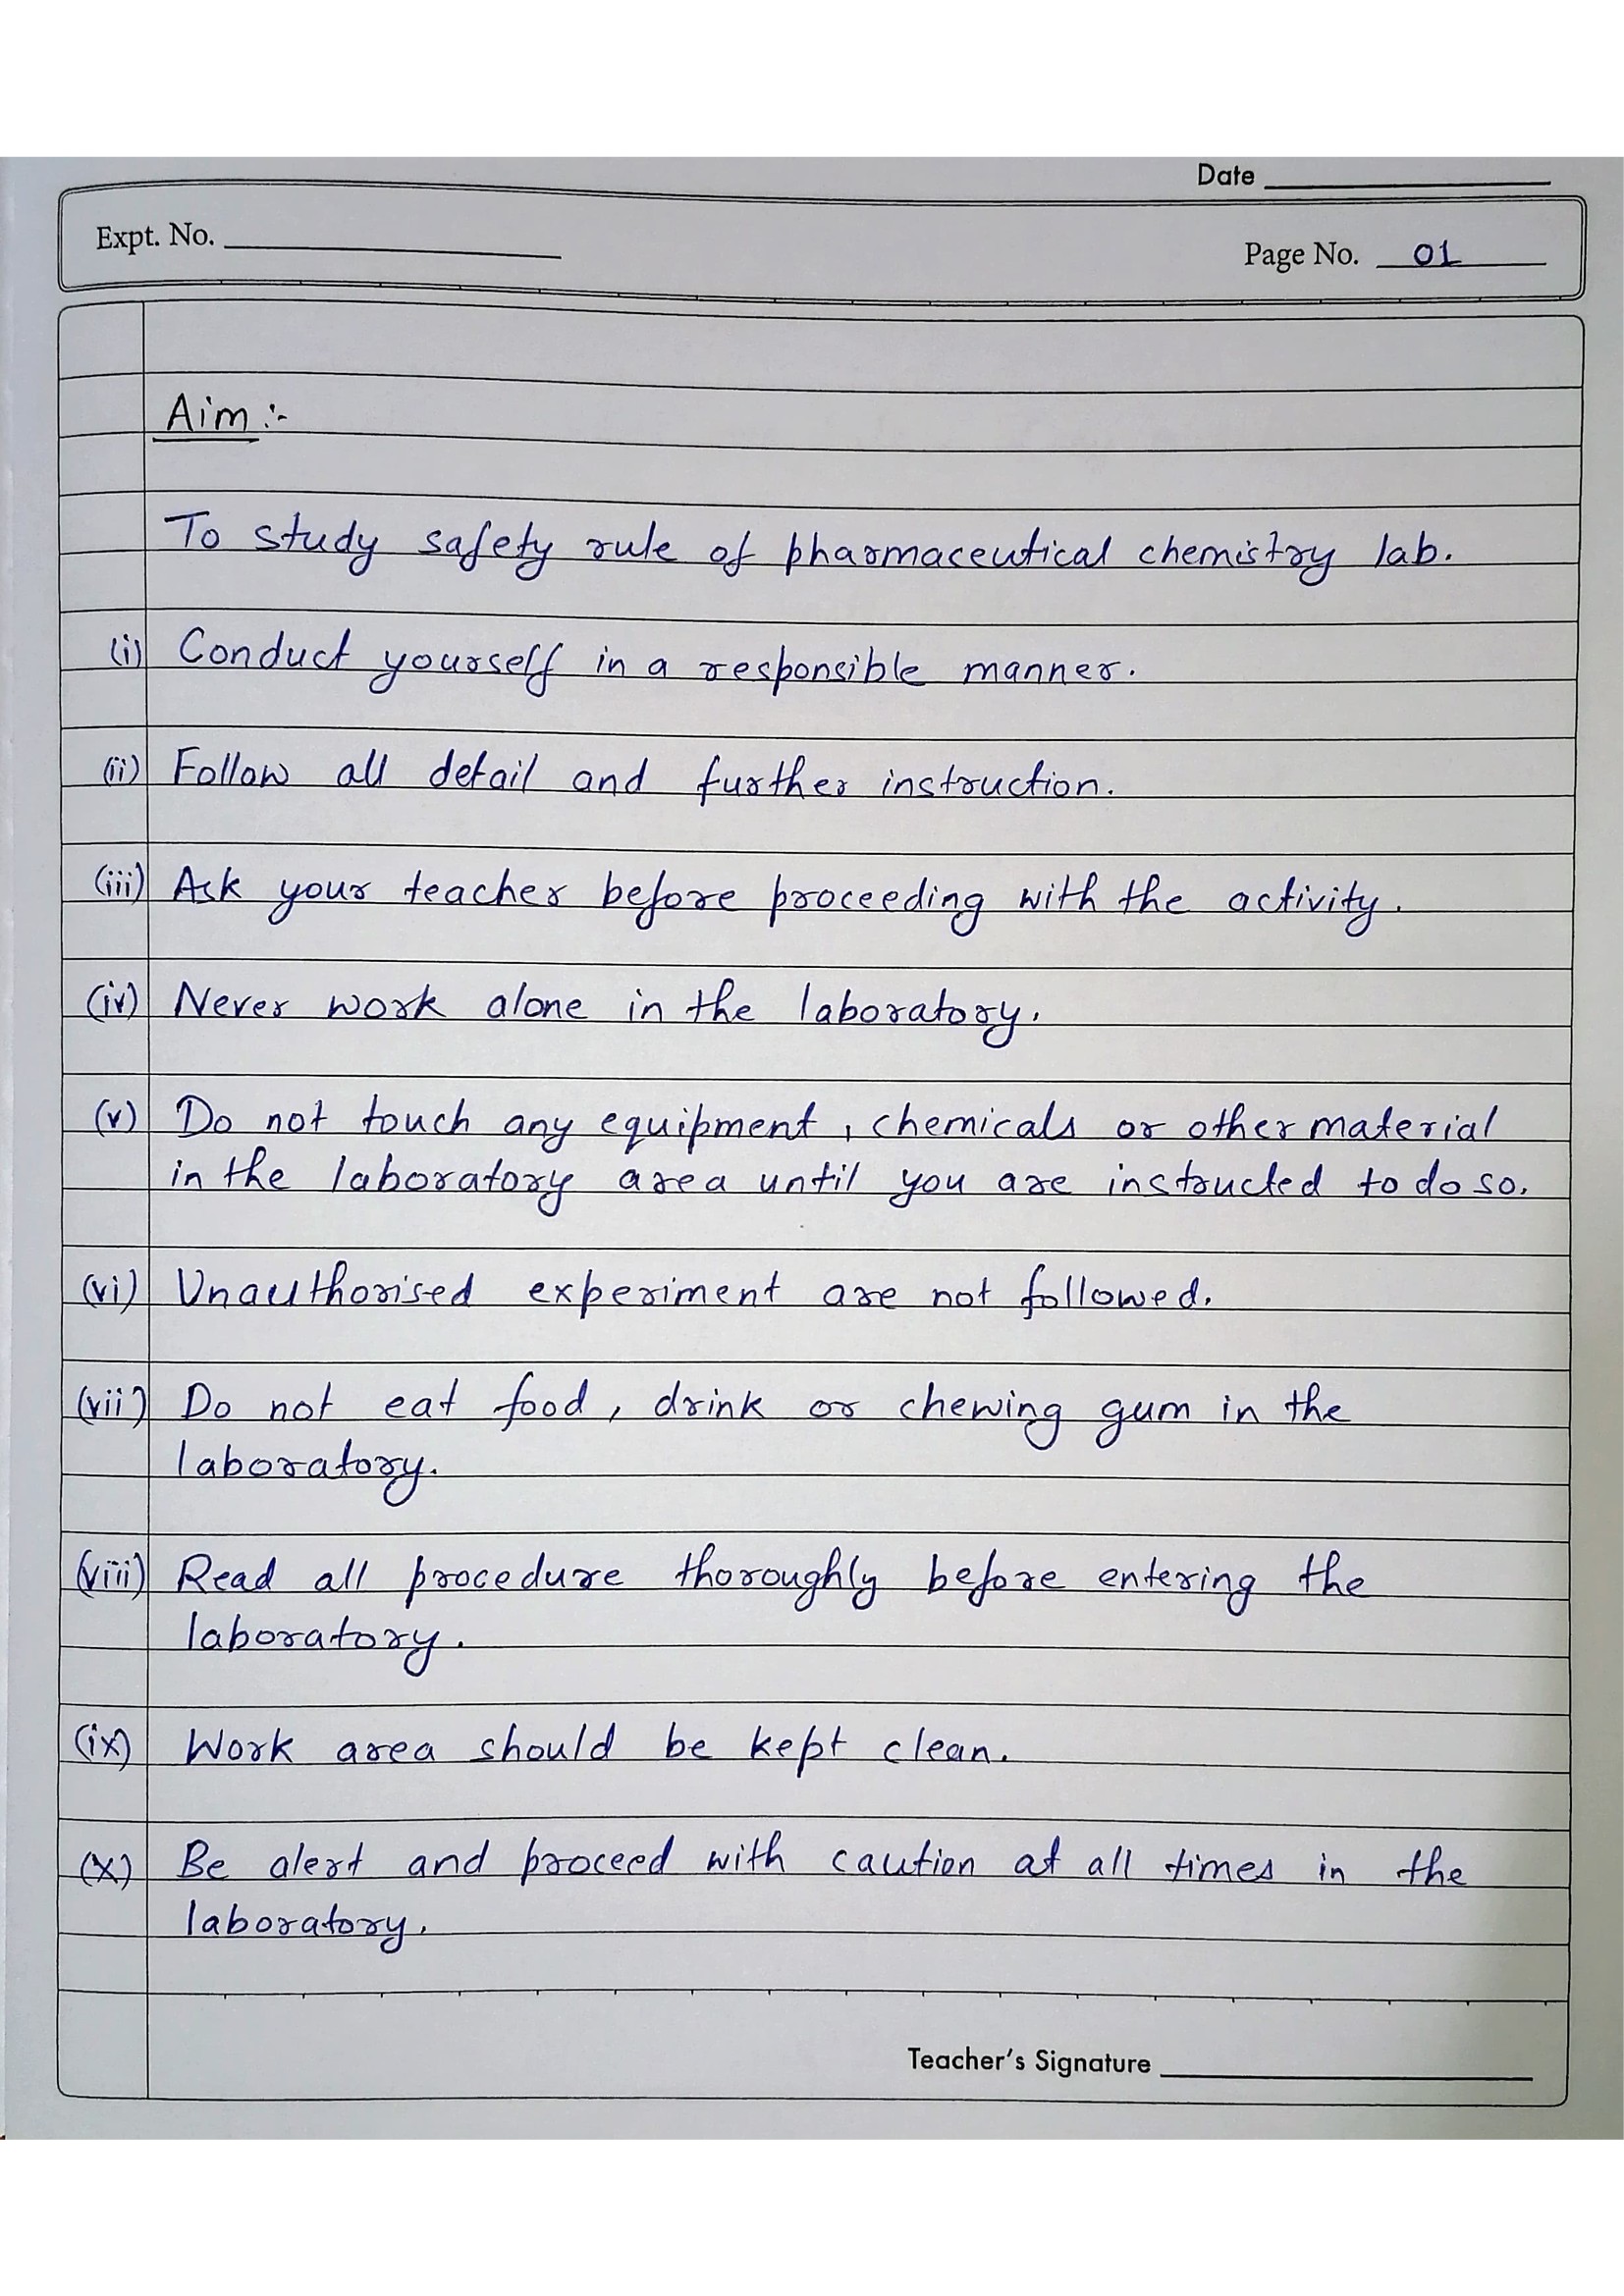 Date
Expt. No.
Page No. 01
Aim :-
To study safety rule of pharmaceutical chemistry lab.
(i) Conduct yourself in a responsible manner.
(ii) Follow all detail and further instruction.
(iii) Ask your teacher before proceeding with the activity.
(iv) Never work alone in the laboratory.
(v) Do not touch any equipment, chemicals or other material
in the laboratory area until you are instructed to do so.
(vi) Unauthorised experiment are not followed.
(vii) Do not eat food, drink or chewing gum in the
laboratory.
(viii) Read all procedure thoroughly before entering the
laboratory.
(ix) Work area should be kept clean.
(x) Be alert and proceed with caution at all times in the
laboratory.
Teacher's Signature